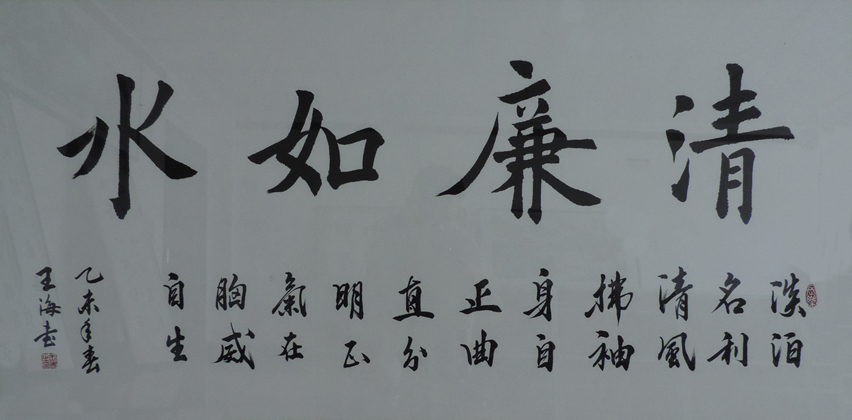 清廉如水
淡泊
名利
清風
拂袖
身自
正曲
直分
明正
氣在
胸威
自生
乙未年春
王海書